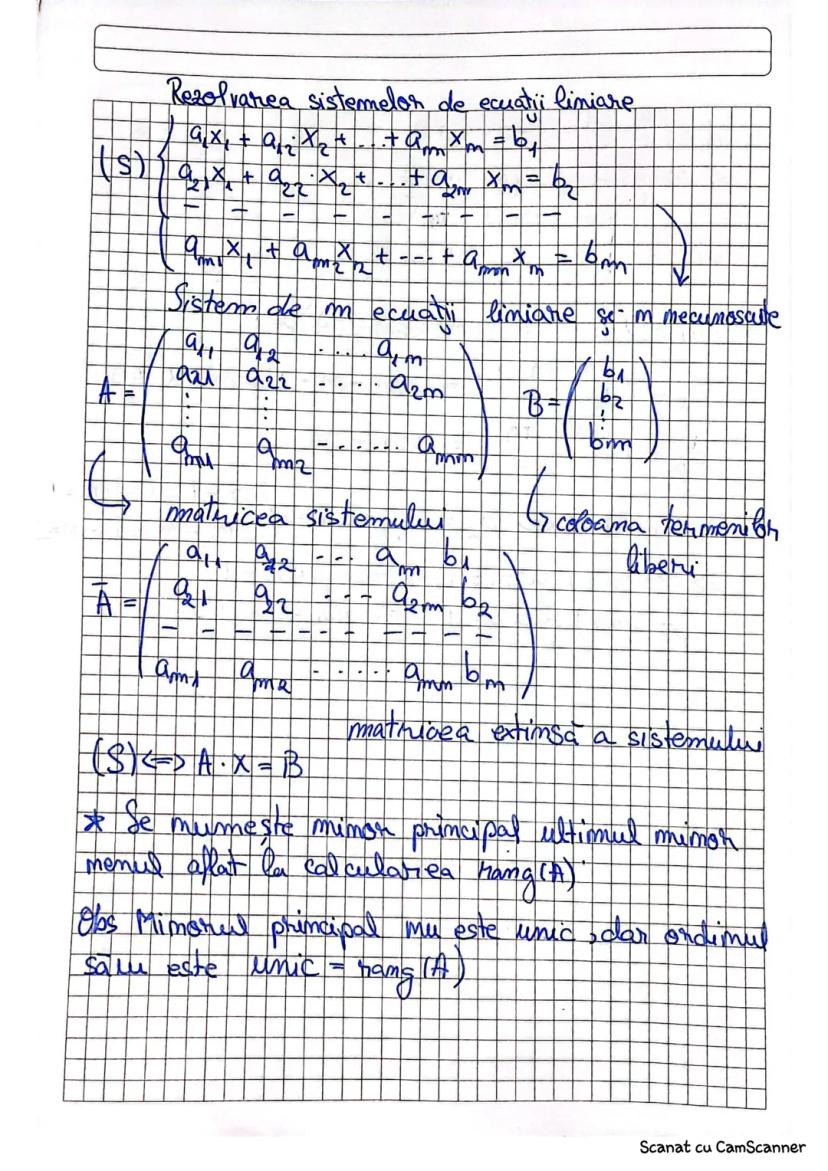 Rezolvarea sistemelor de ecuații liniare
a₁x₁ + a₁₂·x₂ + ... + a₁ₙxₙ = b₁
(S) a₂₁x₁ + a₂₂·x₂ + ... + a₂ₙ xₙ = b₂
aₘ₁x₁ + aₘ₂x₂ + --- + aₘₙxₙ = bₘ
Sistem de m ecuații liniare și n necunoscute
a₁₁ a₁₂ .... a₁ₙ
A = a₂₁ a₂₂ ---- a₂ₙ
aₘ₁ aₘ₂ ------ aₘₙ
B = b₁
b₂
bₘ
matricea sistemului
coloana termenilor
liberi
a₁₁ a₂₂ --- aₙ b₁
Ā = a₂₁ a₂₂ --- a₂ₙ b₂
aₘ₁ aₘ₂ ------ aₘₙ bₘ
matricea extinsă a sistemului
(S) <=> A · X = B
* Se numește minor principal ultimul minor
nenul aflat la calcularea rang(A)
Obs Minorul principal nu este unic, dar ordinul
său este unic = rang(A)
Scanat cu CamScanner